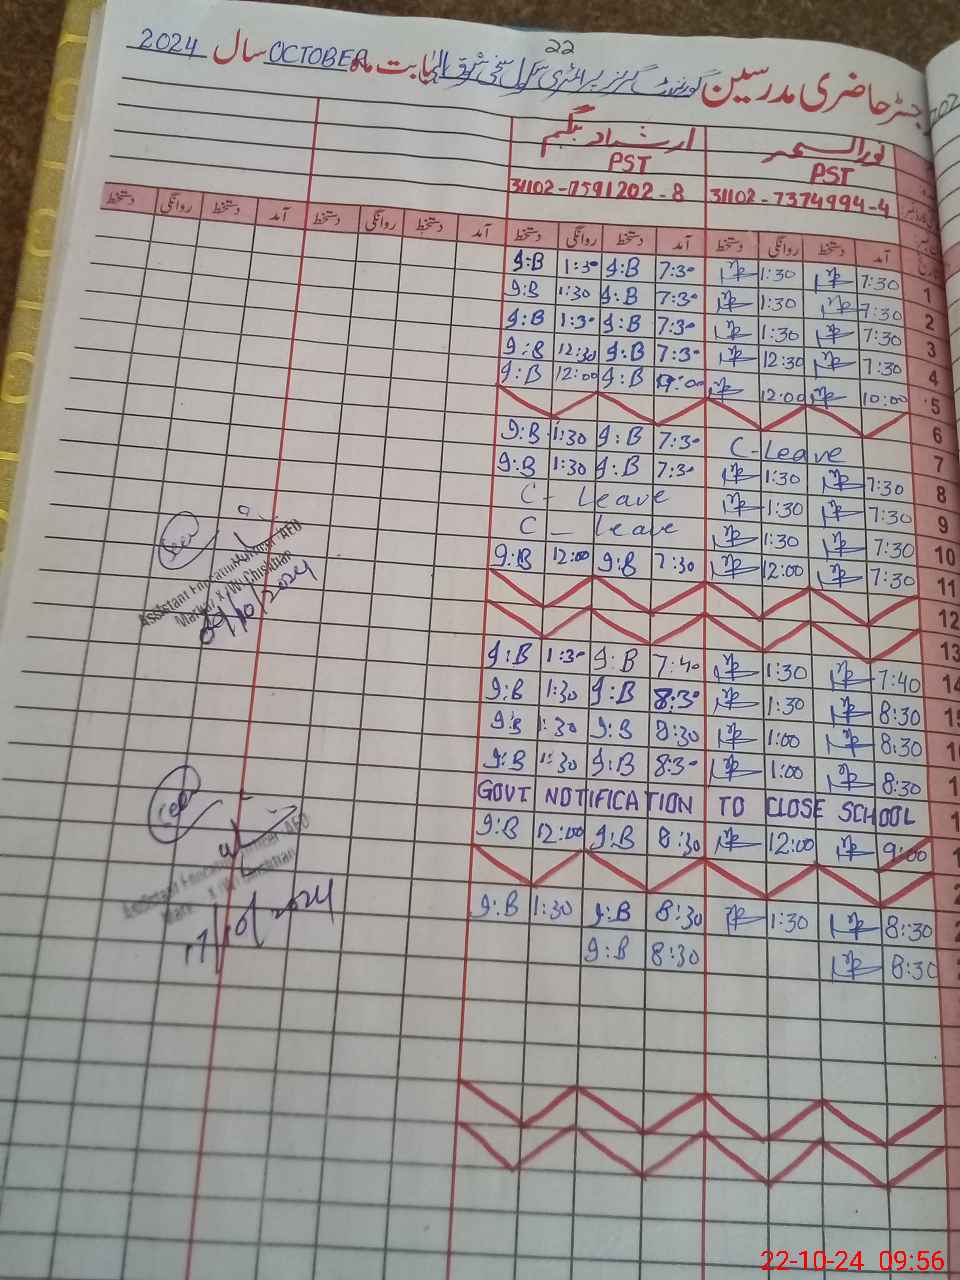 22
رجسٹر حاضری مدرسین گورنمنٹ گرلز پرائمری سکول بابت ماہ OCTOBER سال 2024
نورالسحر ارشاد بیگم
PST PST
31102-7591202-8 31102-7374994-4
آمد دستخط روانگی دستخط آمد دستخط روانگی دستخط آمد دستخط روانگی دستخط آمد دستخط روانگی دستخط
I:B 1:30 I:B 7:30 1:30 7:30 1
I:B 1:30 I:B 7:30 1:30 7:30 2
I:B 1:30 I:B 7:30 1:30 7:30 3
I:B 12:30 I:B 7:30 12:30 7:30 4
I:B 12:00 I:B 12:00 10:00 5
6
I:B 1:30 I:B 7:30 C-Leave 7
I:B 1:30 I:B 7:30 1:30 7:30 8
C- Leave 1:30 7:30 9
C- Leave 1:30 7:30 10
I:B 12:00 I:B 7:30 12:00 7:30 11
12
13
I:B 1:30 I:B 7:40 1:30 7:40 14
I:B 1:30 I:B 8:30 1:30 8:30
I:B 1:30 I:B 8:30 1:00 8:30
I:B 1:30 I:B 8:30 1:00 8:30
GOVT NOTIFICATION TO CLOSE SCHOOL
I:B 12:00 I:B 8:30 12:00 9:00
I:B 1:30 I:B 8:30 1:30 8:30
I:B 8:30 8:30
Assistant Education Officer AEO
Markaz X (W) Chishtian
09/10/2024
Assistant Education Officer AEO
Markaz X (W) Chishtian
17/10/2024
22-10-24 09:56